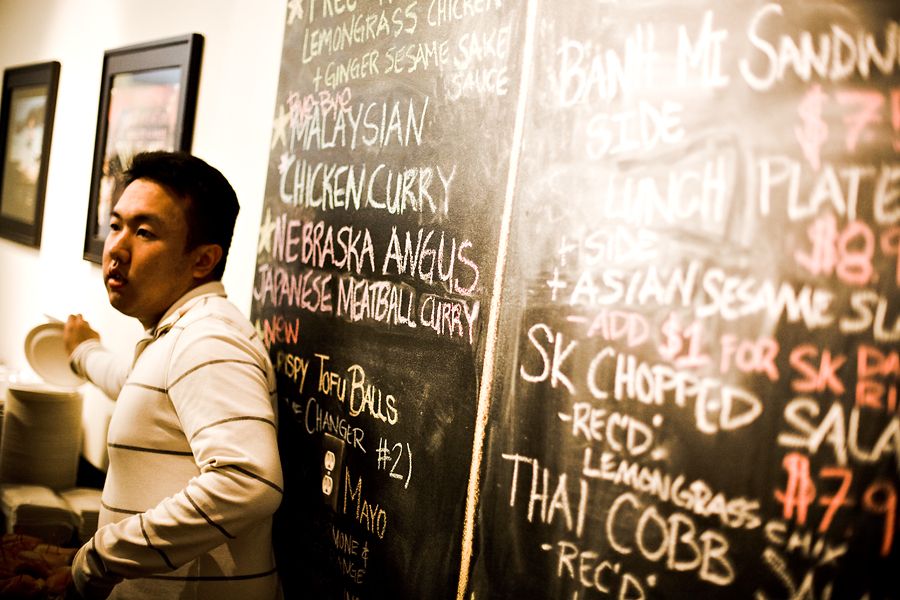 FREE
LEMONGRASS CHICKEN
+ GINGER SESAME SAKE
SAUCE
Bye-Bye
MALAYSIAN
CHICKEN CURRY
NEBRASKA ANGUS
JAPANESE MEATBALL CURRY
NEW
TOFU BALLS
CHANGER #2)
MAYO
BANH MI SANDW
SIDE
LUNCH PLATE
+ SIDE
+ ASIAN SESAME SLA
- ADD $1 FOR SK
SK CHOPPED
SALA
- REC'D:
LEMONGRASS
$7.9
THAI COBB
- REC'D: